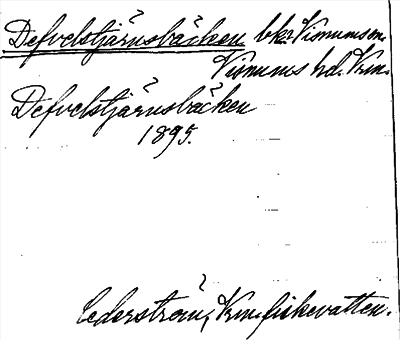 Defvelstjärnsbäcken bker Visnums sn.
Visnums hd. Vrm.
Defvelstjärnsbäcken
1895.
Cederström, Vrm. fiskevatten.